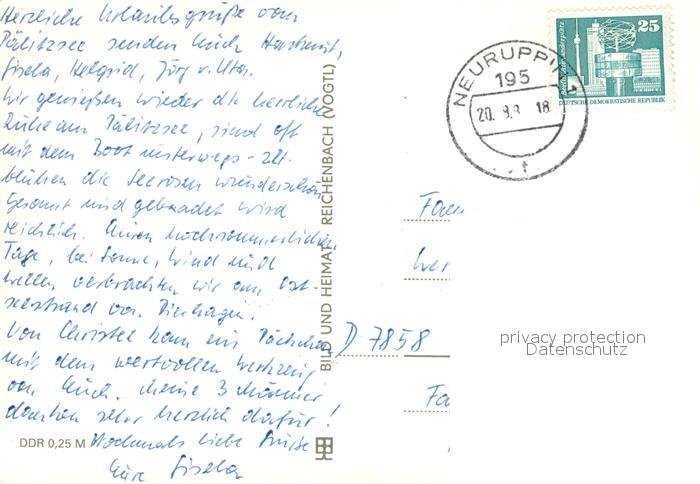 Herzliche Urlaubsgrüße vom
Pälitzsee senden Euch Hartmut,
Gisela, Helgrid, Jörg u. Uta.
Wir genießen wieder die herrliche
Ruhe am Pälitzsee, sind oft
mit dem Boot unterwegs - zZt.
blühen die Seerosen wunderschön
Gesonnt und gebadet wird
reichlich. Einen hochsommerlichen
Tag, bei Sonne, Wind und
Wellen verbrachten wir am Ost-
seestrand von Dierhagen.
Von Christel kam ein Päckchen
mit dem wertvollen Werkzeug
von Euch. Meine 3 Männer
danken sehr herzlich dafür!
Nochmals liebe Grüße
Eure Gisela
DDR 0,25 M
BILD UND HEIMAT · REICHENBACH (VOGTL)
NEURUPPIN 1
195
20. 8.8 18
25
DEUTSCHE DEMOKRATISCHE REPUBLIK
Fam
Wer
D 7858
Fa
privacy protection
Datenschutz